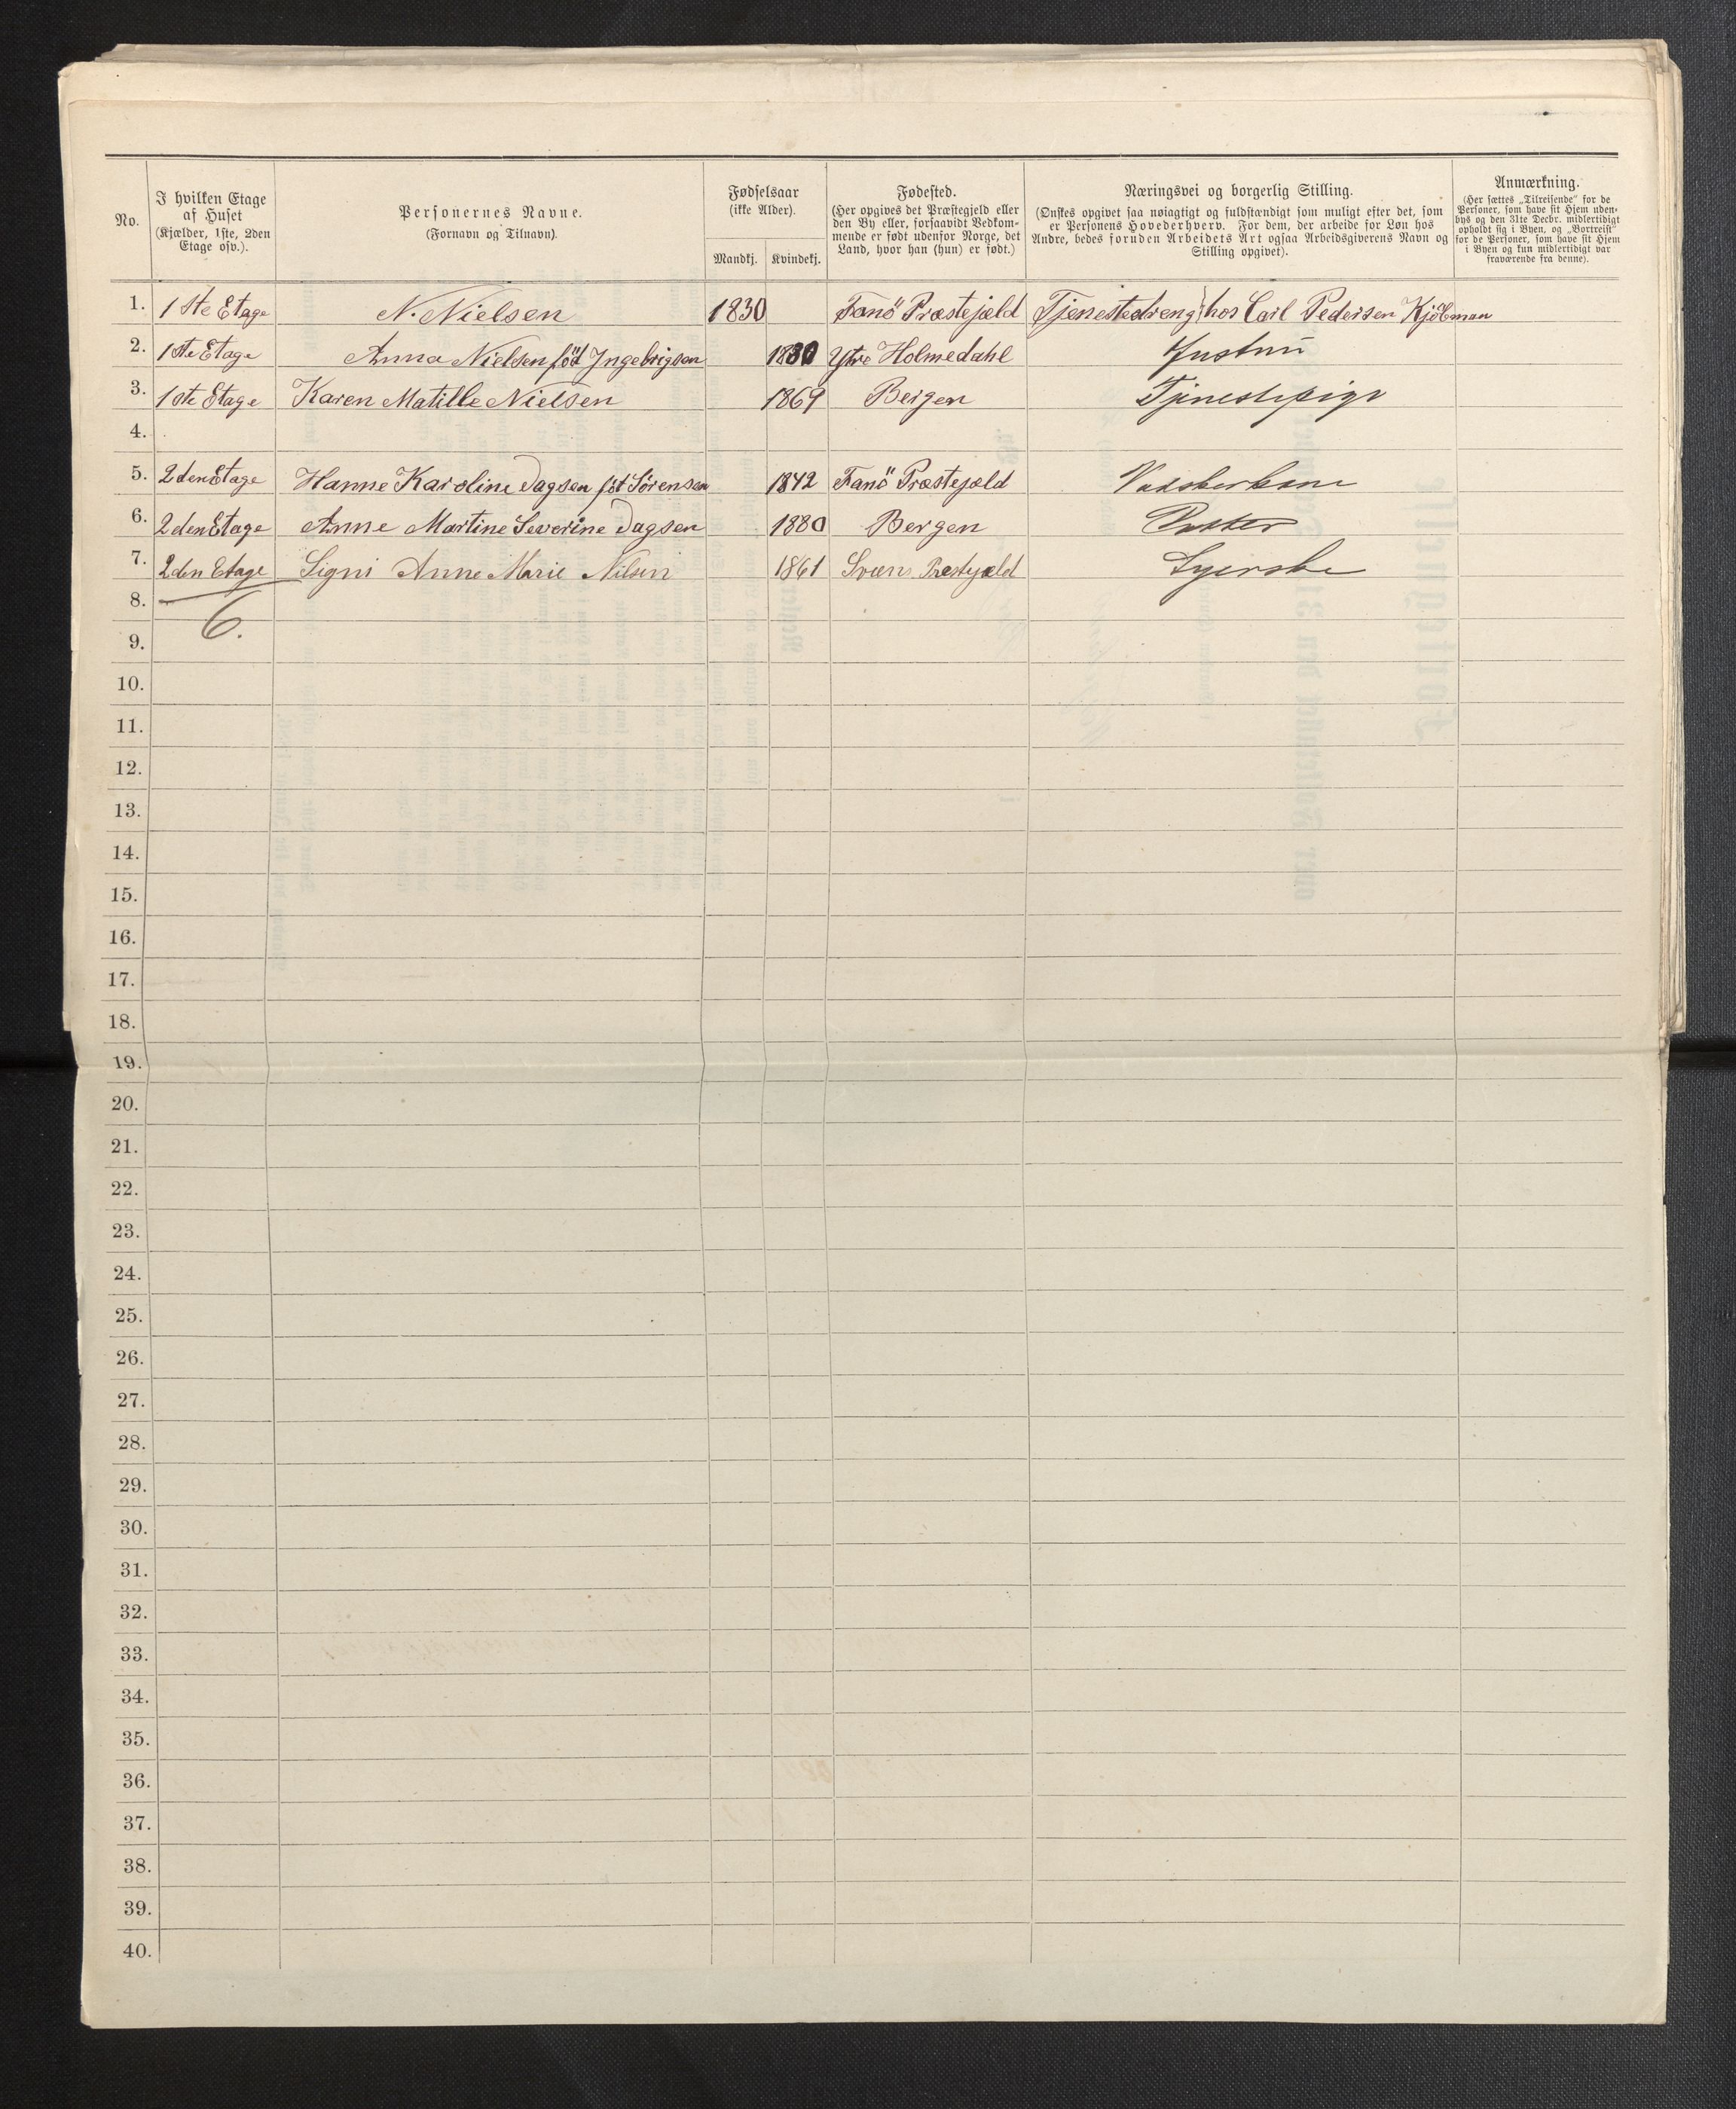 No.
I hvilken Etage af Huset (Kjælder, 1ste, 2den Etage osv.).
Personernes Navne. (Fornavn og Tilnavn).
Fødselsaar (ikke Alder).
Mandkj. Kvindekj.
Fødested. (Her opgives det Præstegjeld eller den By eller, forsaavidt Vedkommende er født udenfor Norge, det Land, hvor han (hun) er født.)
Næringsvei og borgerlig Stilling. (Ønskes opgivet saa nøiagtigt og fuldstændigt som muligt efter det, som er Personens Hovederhverv. For dem, der arbeide for Løn hos Andre, bedes foruden Arbeidets Art ogsaa Arbeidsgiverens Navn og Stilling opgivet).
Anmærkning. (Her sættes „Tilreisende“ for de Personer, som have sit Hjem udenbys og den 31te Decbr. midlertidigt opholdt sig i Byen, og „Bortreist“ for de Personer, som have sit Hjem i Byen og kun midlertidigt var fraværende fra denne).
1. 1ste Etage N. Nielsen 1830 Fanö Præstejæld Tjenestedreng hos Carl Pedersen Kjöbman
2. 1ste Etage Anna Nielsen föd Ingebrigsen 1830 Ytre Holmedahl Hustru
3. 1ste Etage Karen Matille Nielsen 1869 Bergen Tjenestepige
4.
5. 2den Etage Hanne Karoline Dagsen föt Sörensen 1842 Fanö Præstejæld Vaskerkone
6. 2den Etage Anne Martine Severine Dagsen 1880 Bergen Datter
7. 2den Etage Signi Anne Marie Nilsen 1861 Præstejæld Syerske
8. 6.
9.
10.
11.
12.
13.
14.
15.
16.
17.
18.
19.
20.
21.
22.
23.
24.
25.
26.
27.
28.
29.
30.
31.
32.
33.
34.
35.
36.
37.
38.
39.
40.